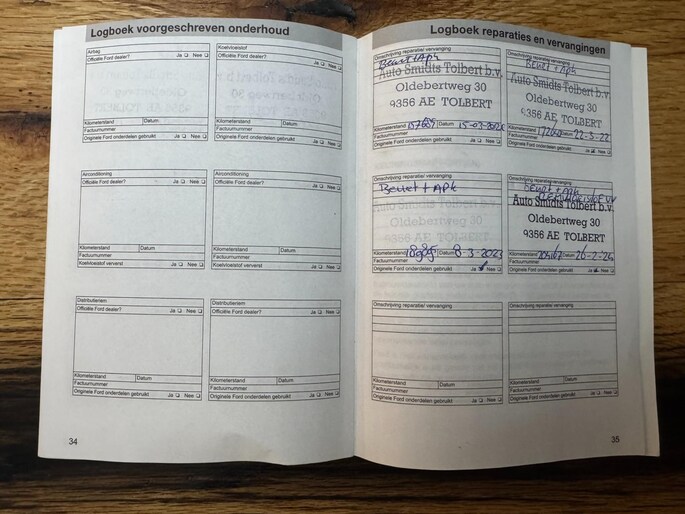 Logboek voorgeschreven onderhoud
Airbag
Officiële Ford dealer? Ja Nee
Kilometerstand Datum
Factuurnummer
Originele Ford onderdelen gebruikt Ja Nee
Koelvloeistof
Officiële Ford dealer? Ja Nee
Kilometerstand Datum
Factuurnummer
Originele Ford onderdelen gebruikt Ja Nee
Airconditioning
Officiële Ford dealer? Ja Nee
Kilometerstand Datum
Factuurnummer
Koelvloeistof ververst Ja Nee
Airconditioning
Officiële Ford dealer? Ja Nee
Kilometerstand Datum
Factuurnummer
Koelvloeistof ververst Ja Nee
Distributieriem
Officiële Ford dealer? Ja Nee
Kilometerstand Datum
Factuurnummer
Originele Ford onderdelen gebruikt Ja Nee
Distributieriem
Officiële Ford dealer? Ja Nee
Kilometerstand Datum
Factuurnummer
Originele Ford onderdelen gebruikt Ja Nee
34
Logboek reparaties en vervangingen
Omschrijving reparatie/ vervanging
Beurt + Apk
Auto Smidts Tolbert b.v.
Oldebertweg 30
9356 AE TOLBERT
Kilometerstand Datum
Factuurnummer
Originele Ford onderdelen gebruikt Ja Nee
Omschrijving reparatie/ vervanging
Beurt + Apk
Auto Smidts Tolbert b.v.
Oldebertweg 30
9356 AE TOLBERT
Kilometerstand Datum 22-3-22
Factuurnummer
Originele Ford onderdelen gebruikt Ja Nee
Omschrijving reparatie/ vervanging
Beurt + Apk
Kilometerstand Datum 8-3-2023
Factuurnummer
Originele Ford onderdelen gebruikt Ja Nee
Omschrijving reparatie/ vervanging
Beurt + Apk
Auto Smidts Tolbert b.v.
Oldebertweg 30
9356 AE TOLBERT
Kilometerstand Datum 26-2-24
Factuurnummer
Originele Ford onderdelen gebruikt Ja Nee
Omschrijving reparatie/ vervanging
Kilometerstand Datum
Factuurnummer
Originele Ford onderdelen gebruikt Ja Nee
Omschrijving reparatie/ vervanging
Kilometerstand Datum
Factuurnummer
Originele Ford onderdelen gebruikt Ja Nee
35